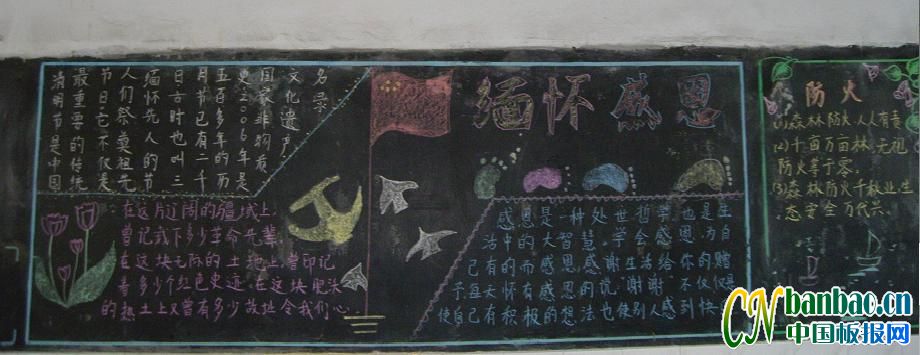 清明节是中国
最重要的传统
节日它不仅是
人们祭奠祖先
缅怀先人的节
日古时也叫三
月节已有二千
五百多年的历
史2006年是
国家非物质
文化遗产
名录
缅怀感恩
在这片辽阔的疆域上,
曾记载下多少革命先辈,
在这块无际的土地上,曾印记
着多少个红色史迹,在这块肥沃
的热土上又曾有多少故址令我们心
感恩是一种处世哲学,也是生
活中的大智慧。学会感恩,为自
己有的而感恩,感谢生活给你的赠
予,每天怀有感恩的说“谢谢”不仅仅是
使自己有积极的想法,也使别人感到快
防火
(1)森林防火,人人有责
(2)千亩万亩林,无祖
防火等于零。
(3)森林防火千秋业,生
态安全万代兴。
CN banbao.cn
中国板报网